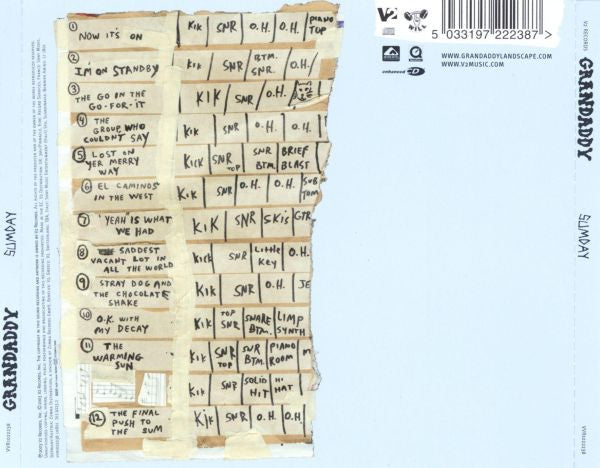 V2
5 033197 222387 >
enhanced CD
WWW.GRANDADDYLANDSCAPE.COM
WWW.V2MUSIC.COM
① NOW IT'S ON KiK SNR O.H. O.H. PIANO TOP
② I'M ON STANDBY KiK SNR BTM. SNR. O.H.
③ THE GO IN THE GO-FOR-IT KIK SNR O.H.
④ THE GROUP WHO COULDN'T SAY KIK SNR O.H. O.H.
⑤ LOST ON YER MERRY WAY KICK SNR TOP SNR BTM. BRIEF BLAST
⑥ EL CAMINOS IN THE WEST KIK SNR O.H. O.H. SUB TOM
⑦ 'YEAH' IS WHAT WE HAD KiK SNR SKI'S GTR
⑧ SADDEST VACANT LOT IN ALL THE WORLD Kick SNR Little Key O.H.
⑨ STRAY DOG AND THE CHOCOLATE SHAKE KIK SNR O.H. JE
⑩ O.K. WITH MY DECAY KiK TOP SNR SNARE BTM. LIMP SYNTH
⑪ THE WARMING SUN KiK SNR TOP SNR BTM. PIANO ROOM M
KIK SNR SOLID HIT HI HAT
⑫ THE FINAL PUSH TO THE SUM KiK SNR O.H. O.H.
GRANDADDY
SUMDAY
VVR1022238
V2 RECORDS
GRANDADDY
SUMDAY
VVR1022238